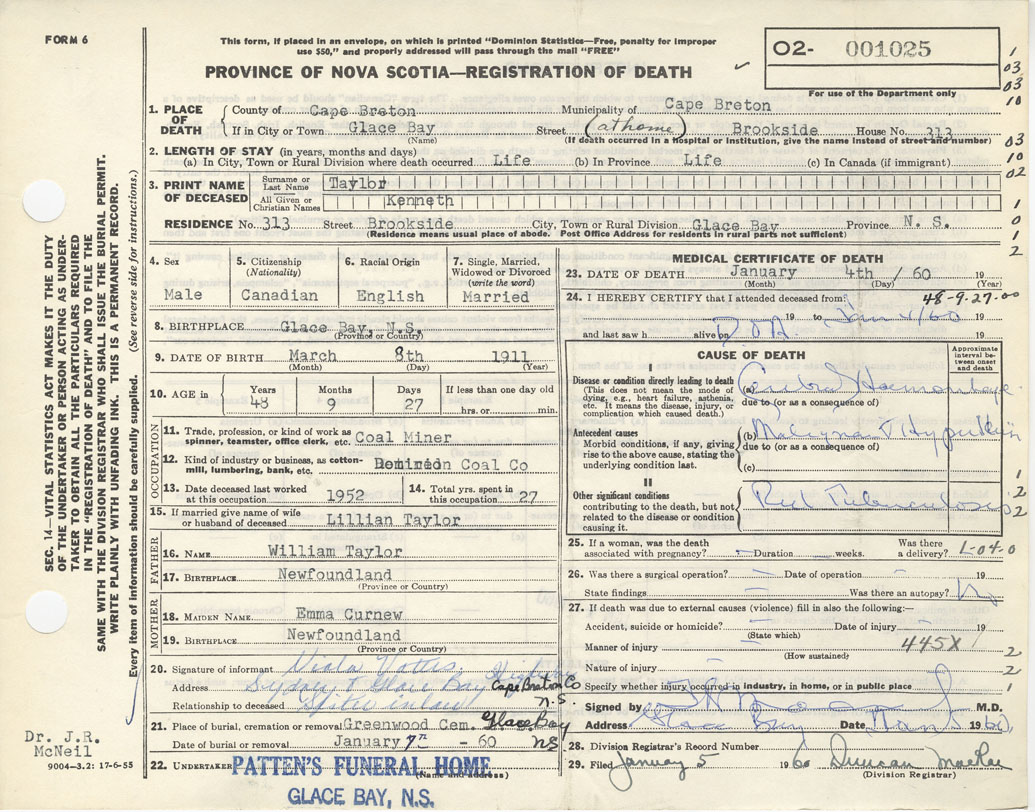 FORM 6
This form, if placed in an envelope, on which is printed "Dominion Statistics—Free, penalty for improper
use $50," and properly addressed will pass through the mail "FREE"
PROVINCE OF NOVA SCOTIA—REGISTRATION OF DEATH
02- 001025
For use of the Department only
1. PLACE OF DEATH County of Cape Breton Municipality of Cape Breton
If in City or Town Glace Bay Street (at home) Brookside House No. 313
(Name) (If death occurred in a hospital or institution, give the name instead of street and number)
2. LENGTH OF STAY (in years, months and days)
(a) In City, Town or Rural Division where death occurred Life (b) In Province Life (c) In Canada (if immigrant)
3. PRINT NAME OF DECEASED Surname or Last Name Taylor
All Given or Christian Names Kenneth
RESIDENCE No. 313 Street Brookside City, Town or Rural Division Glace Bay Province N. S.
(Residence means usual place of abode. Post Office Address for residents in rural parts not sufficient)
4. Sex Male
5. Citizenship (Nationality) Canadian
6. Racial Origin English
7. Single, Married, Widowed or Divorced (write the word) Married
8. BIRTHPLACE Glace Bay, N.S.
(Province or Country)
9. DATE OF BIRTH March 8th 1911
(Month) (Day) (Year)
10. AGE in Years 48 Months 9 Days 27 If less than one day old hrs. or min.
OCCUPATION
11. Trade, profession, or kind of work as spinner, teamster, office clerk, etc. Coal Miner
12. Kind of industry or business, as cotton-mill, lumbering, bank, etc. Dominion Coal Co
13. Date deceased last worked at this occupation 1952
14. Total yrs. spent in this occupation 27
15. If married give name of wife or husband of deceased Lillian Taylor
FATHER
16. NAME William Taylor
17. BIRTHPLACE Newfoundland
(Province or Country)
MOTHER
18. MAIDEN NAME Emma Curnew
19. BIRTHPLACE Newfoundland
(Province or Country)
20. Signature of informant Viola
Address Sydney Glace Bay Highway Cape Breton Co
Relationship to deceased Sister inlaw N.S.
21. Place of burial, cremation or removal Greenwood Cem. Glace Bay
Date of burial or removal January 7th - 60 NS
22. UNDERTAKER PATTEN'S FUNERAL HOME
(Name and address)
GLACE BAY, N.S.
MEDICAL CERTIFICATE OF DEATH
23. DATE OF DEATH January 4th / 60 19
(Month) (Day) (Year)
24. I HEREBY CERTIFY that I attended deceased from 48-9-27-00
19 to Jan 4/60 19
and last saw h alive on D.O.A. 19
CAUSE OF DEATH
Approximate interval between onset and death
I
Disease or condition directly leading to death (a) Cerebral Haemorrhage
(This does not mean the mode of dying, e.g., heart failure, asthenia, etc. It means the disease, injury, or complication which caused death.)
due to (or as a consequence of)
Antecedent causes (b) Malignant Hypertension
Morbid conditions, if any, giving rise to the above cause, stating the underlying condition last.
due to (or as a consequence of)
(c)
II
Other significant conditions Tuberculosis
contributing to the death, but not related to the disease or condition causing it.
25. If a woman, was the death associated with pregnancy? — Duration weeks. Was there a delivery? 1-04-0
26. Was there a surgical operation? — Date of operation — 19
State findings Was there an autopsy? No
27. If death was due to external causes (violence) fill in also the following:—
Accident, suicide or homicide? — Date of injury — 19
(State which)
Manner of injury 445X
(How sustained)
Nature of injury —
Specify whether injury occurred in industry, in home, or in public place
Signed by M.D.
Address Glace Bay Date Jan 5 1960
28. Division Registrar's Record Number
29. Filed January 5 1960 Duncan MacRae
(Division Registrar)
SEC. 14—VITAL STATISTICS ACT MAKES IT THE DUTY
OF THE UNDERTAKER OR PERSON ACTING AS UNDER-
TAKER TO OBTAIN ALL THE PARTICULARS REQUIRED
IN THE "REGISTRATION OF DEATH" AND TO FILE THE
SAME WITH THE DIVISION REGISTRAR WHO SHALL ISSUE THE BURIAL PERMIT.
WRITE PLAINLY WITH UNFADING INK. THIS IS A PERMANENT RECORD.
Every item of information should be carefully supplied. (See reverse side for instructions.)
Dr. J.R.
McNeil
9004—3.2: 17-6-55
1
03
03
10
03
10
02
1
0
1
2
1
2
2
2
2
1